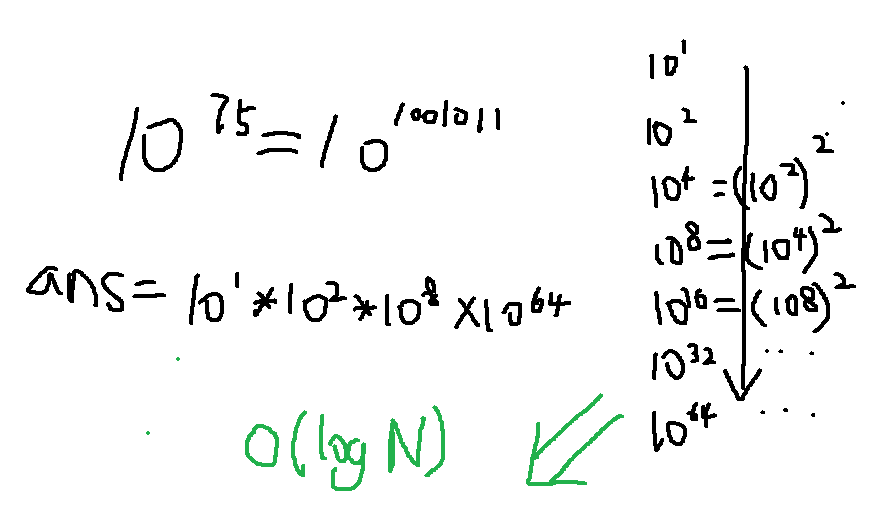 10^75 = 10^1001011
ans = 10^1 * 10^2 * 10^8 × 10^64
O(log N)
10^1
10^2
10^4 = (10^2)^2
10^8 = (10^4)^2
10^16 = (10^8)^2
10^32 ...
10^64 ...